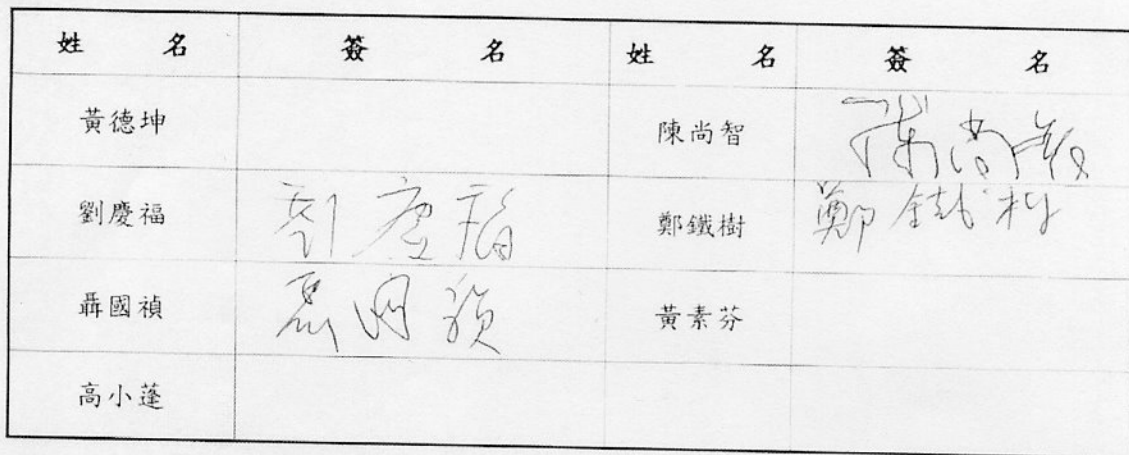 姓名 簽名 姓名 簽名
黃德坤 陳尚智 陳尚智
劉慶福 劉慶福 鄭鐵樹 鄭鐵樹
聶國禎 聶国禎 黃素芬
高小蓬